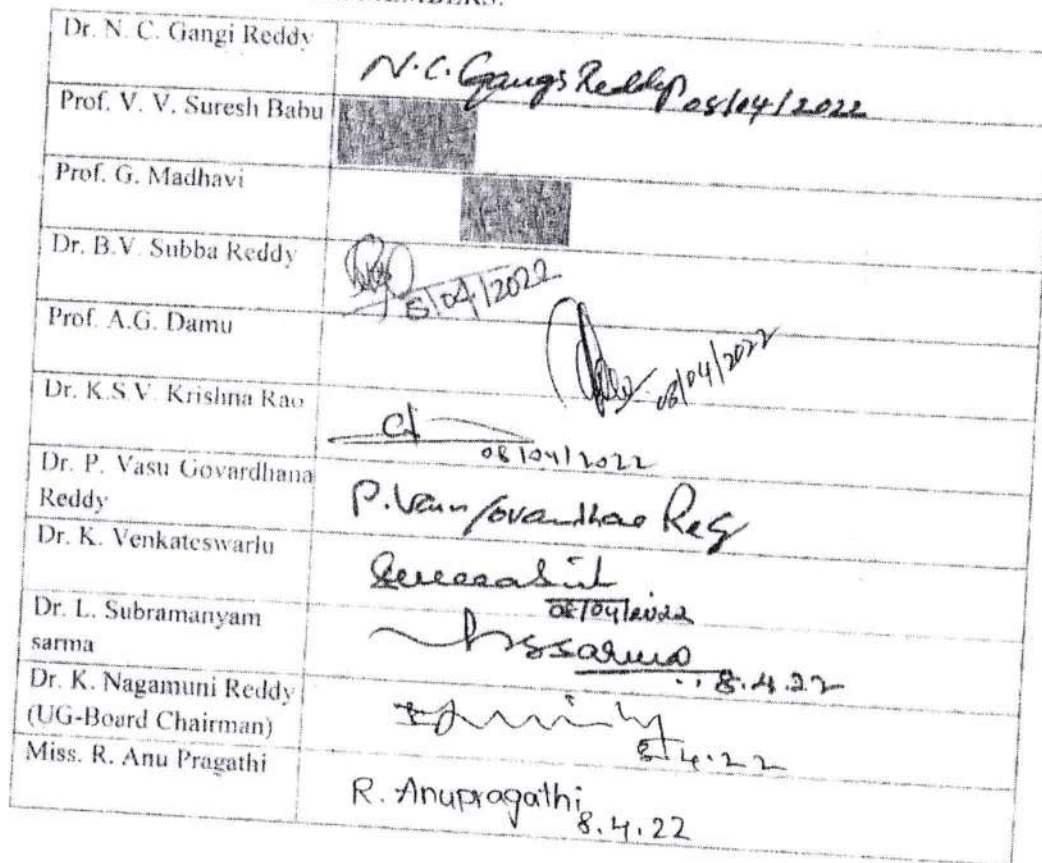 MEMBERS:
Dr. N. C. Gangi Reddy
N.C. Gangi Reddy 08/04/2022
Prof. V. V. Suresh Babu
Prof. G. Madhavi
Dr. B.V. Subba Reddy
8/04/2022
Prof. A.G. Damu
08/04/2022
Dr. K.S.V. Krishna Rao
08/04/2022
Dr. P. Vasu Govardhana
Reddy
P. Vasu Govardhana Reddy
Dr. K. Venkateswarlu
08/04/2022
Dr. L. Subramanyam
sarma
lssarma
8.4.22
Dr. K. Nagamuni Reddy
(UG-Board Chairman)
8.4.22
Miss. R. Anu Pragathi
R. Anupragathi
8.4.22